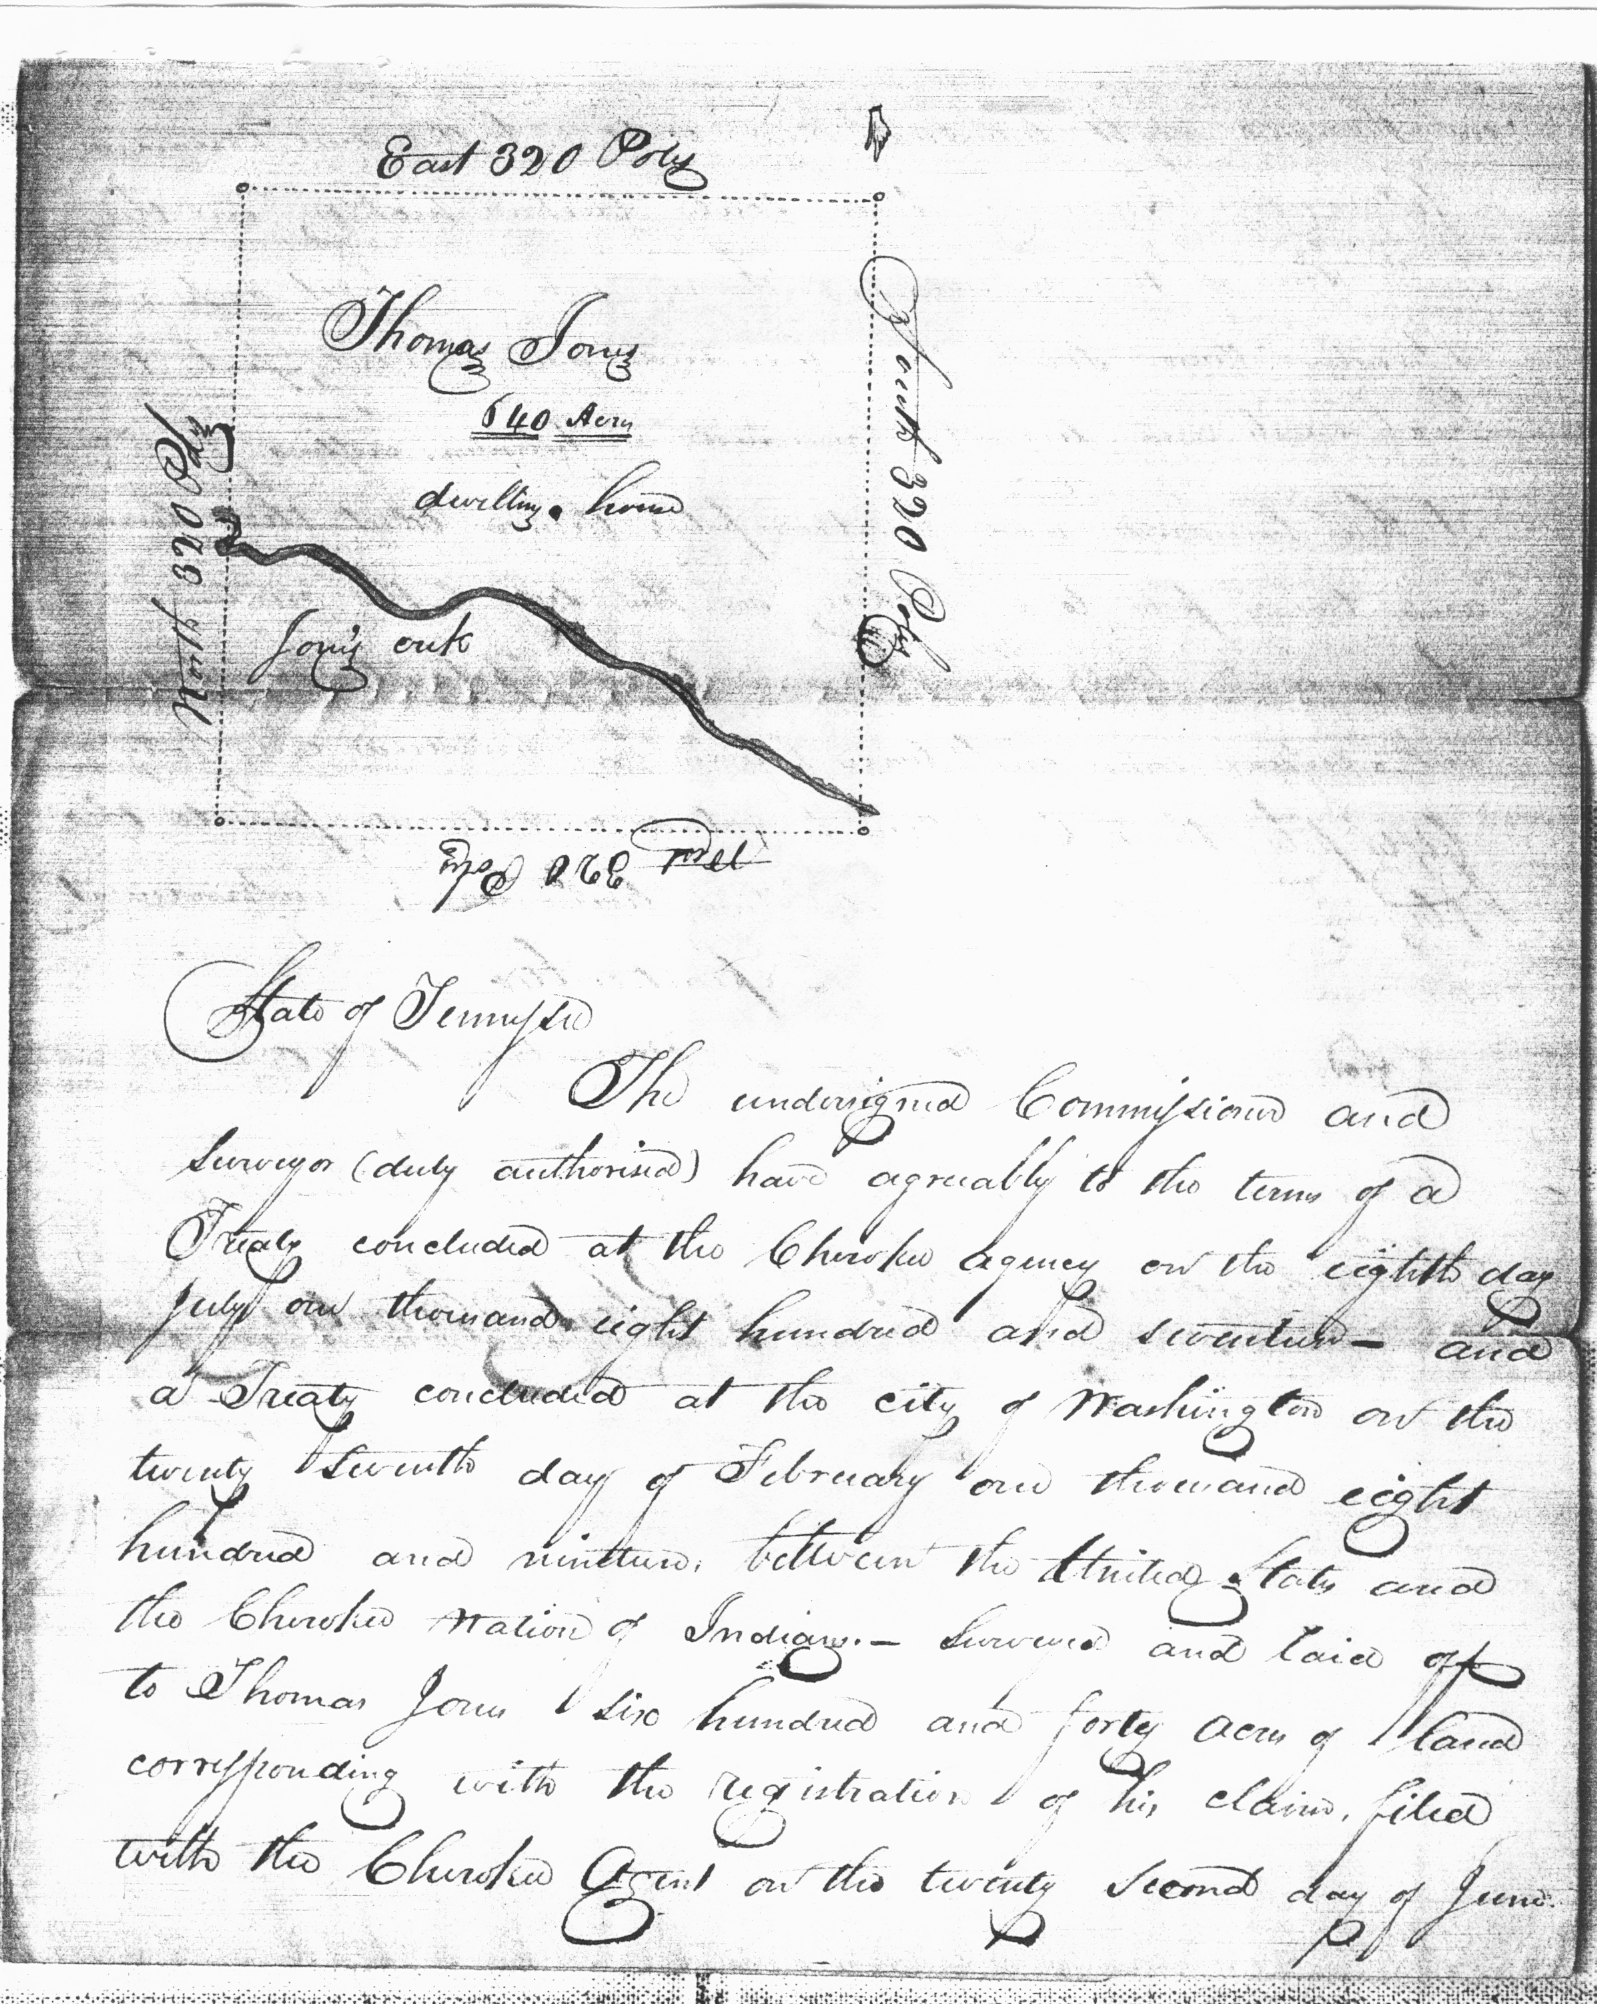 East 320 Poles
Thomas Jones
640 Acres
dwelling house
North 320 Poles
South 320 Poles
Jones's creek
West 320 Poles
State of Tennessee
The undersigned Commissioner and
Surveyor (duly authorised) have agreeably to the terms of a
Treaty concluded at the Cherokee agency on the eighth day
July one thousand eight hundred and seventeen — and
a Treaty concluded at the city of Washington on the
twenty seventh day of February one thousand eight
hundred and nineteen, between the United States and
the Cherokee Nation of Indians. — Surveyed and laid off
to Thomas Jones six hundred and forty acres of land
corresponding with the registration of his claim, filed
with the Cherokee Agent on the twenty second day of June.